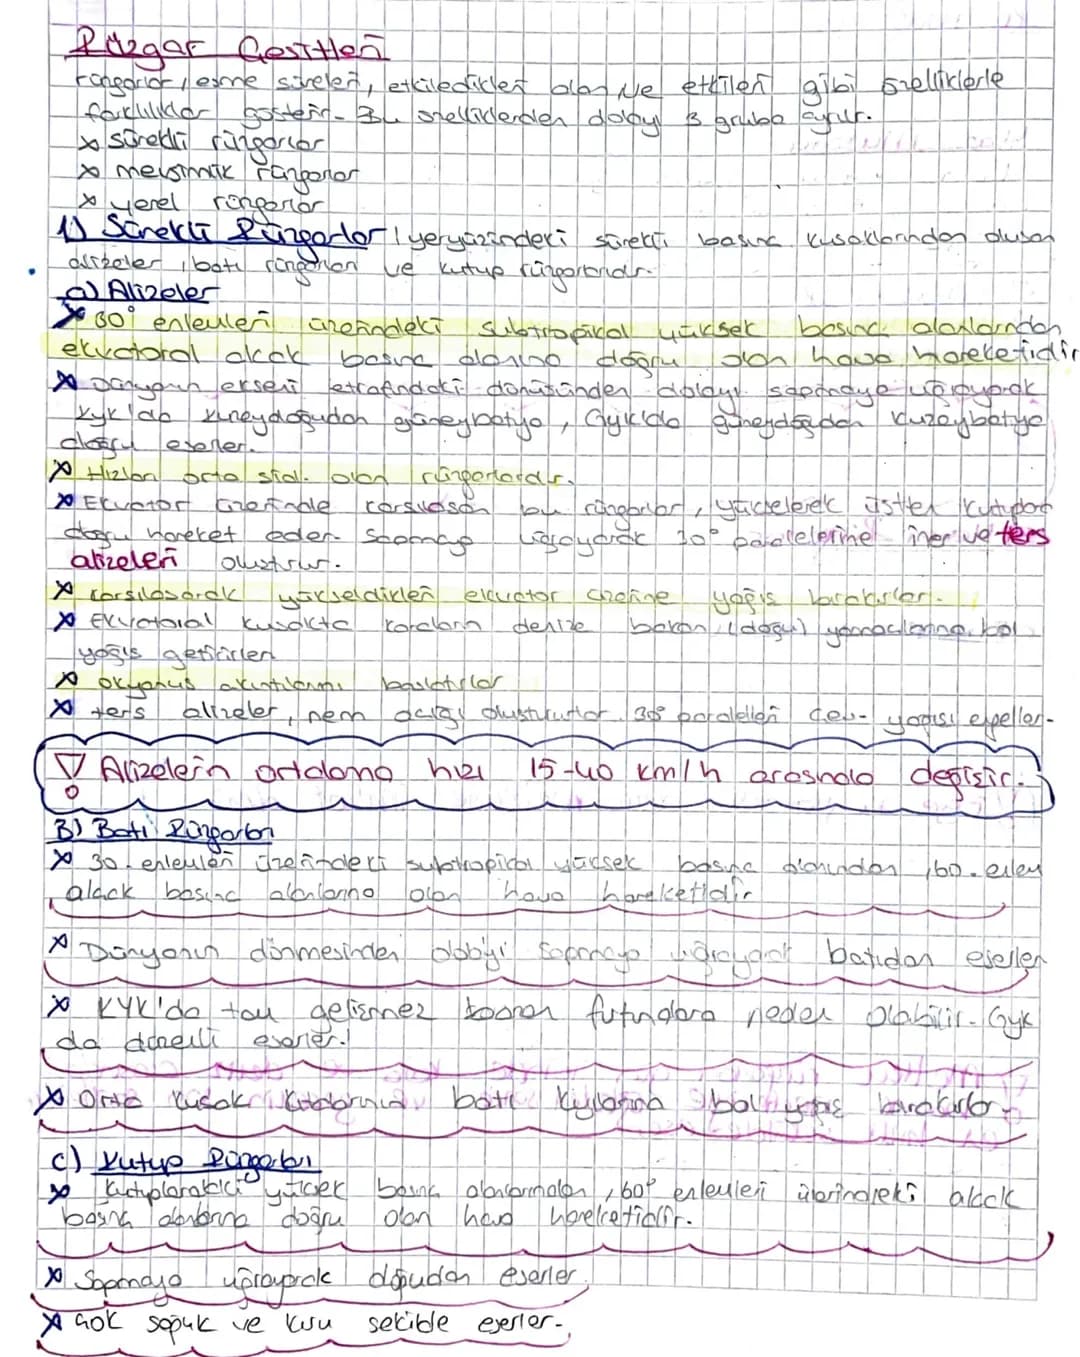 Rüzgar Çeşitleri
rüzgarlar, esme süreleri, etkiledikleri alan ve etkileri gibi özelliklerle
farklılıklar gösterir. Bu özelliklerden dolayı 3 gruba ayrılır.
x sürekli rüzgarlar
x mevsimlik rüzgarlar
x yerel rüzgarlar
1) Sürekli Rüzgarlar / yeryüzündeki sürekli basınç kuşaklarından oluşan
alizeler, batı rüzgarları ve kutup rüzgarlarıdır.
a) Alizeler
x 30° enlemleri üzerindeki subtropikal yüksek basınç alanlarından
ekvatoral alçak basınç alanına doğru olan hava hareketidir
x Dünyanın ekseni etrafındaki dönüşünden dolayı sapmaya uğrayarak
KYK'da kuzeydoğudan güneybatıya, GYK'da güneydoğudan kuzeybatıya
doğru eserler.
x Hızları orta olan rüzgarlardır.
x Ekvator üzerinde karşılaşan bu rüzgarlar, yükselerek üstten kutuplara
doğru hareket eder. Sapmaya uğrayarak 30° paralellerine iner ve ters
alizeleri oluşturur.
x karşılaşarak yükseldikleri ekvator üzerine yağış bırakırlar.
x Ekvatoral kuşakta karaların denize bakan (doğu) yamaçlarına bol
yağış getirirler
x okyanus akıntılarını başlatırlar
x ters alizeler, nem açığı oluştururlar. 30° paralelleri çev. yağışı engeller.
! Alizelerin ortalama hızı 15-40 km/h arasında değişir.
B) Batı Rüzgarları
x 30. enlemleri üzerindeki subtropikal yüksek basınç alanından, 60. enlem
alçak basınç alanlarına olan hava hareketidir
x Dünyanın dönmesinden dolayı sapmaya uğrayarak batıdan eserler
x KYK'da tam gelişmez bazen fırtınalara neden olabilir. GYK
da düzenli eserler.
x Orta kuşak kıtalarının batı kıyılarına bol yağış bırakırlar.
c) Kutup Rüzgarları
x Kutuplardaki yüksek basınç alanlarından, 60° enlemleri üzerindeki alçak
basınç alanlarına doğru olan hava hareketidir.
x Sapmaya uğrayarak doğudan eserler.
x çok soğuk ve kuru şekilde eserler.